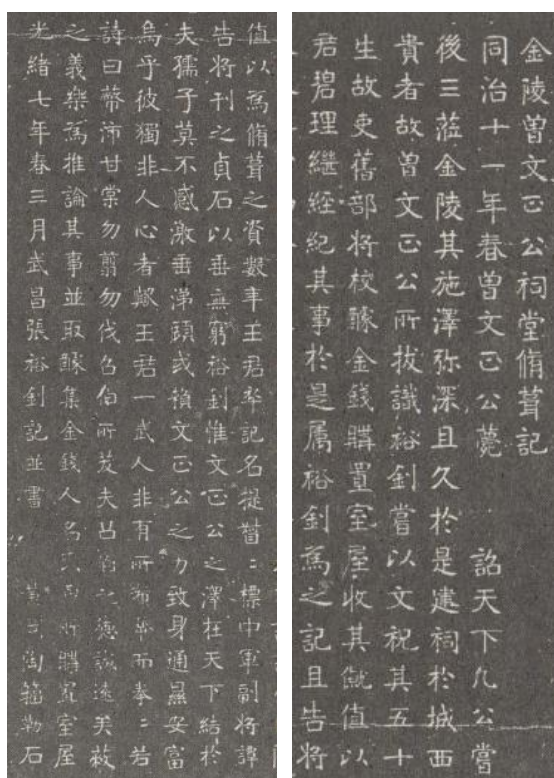 金陵曾文正公祠堂脩葺記
同治十一年春曾文正公薨 詔天下凡公嘗
後三蒞金陵其施澤弥深且久於是建祠於城西
貴者故曾文正公所拔識裕釗嘗以文祝其五十
生故吏舊部將校醵金錢購置室屋收其僦值以
君碧理繼經紀其事於是属裕釗為之記且告將
值以為脩葺之資數年王君卒記名提督二標中軍副將譚
告將刊之貞石以垂無窮裕釗惟文正公之澤在天下結於
夫孺子莫不感激垂涕顧或藉文正公之力致身通顯安富
烏乎彼獨非人心者歟王君一武人非有所希冀而拳二若
詩曰蔽沛甘棠勿翦勿伐召伯所茇夫召伯之德誠遠矣蔽
之義樂為推論其事並取醵集金錢人名氏與所購置室屋
光緒七年春三月武昌張裕釗記並書 陶 勒石